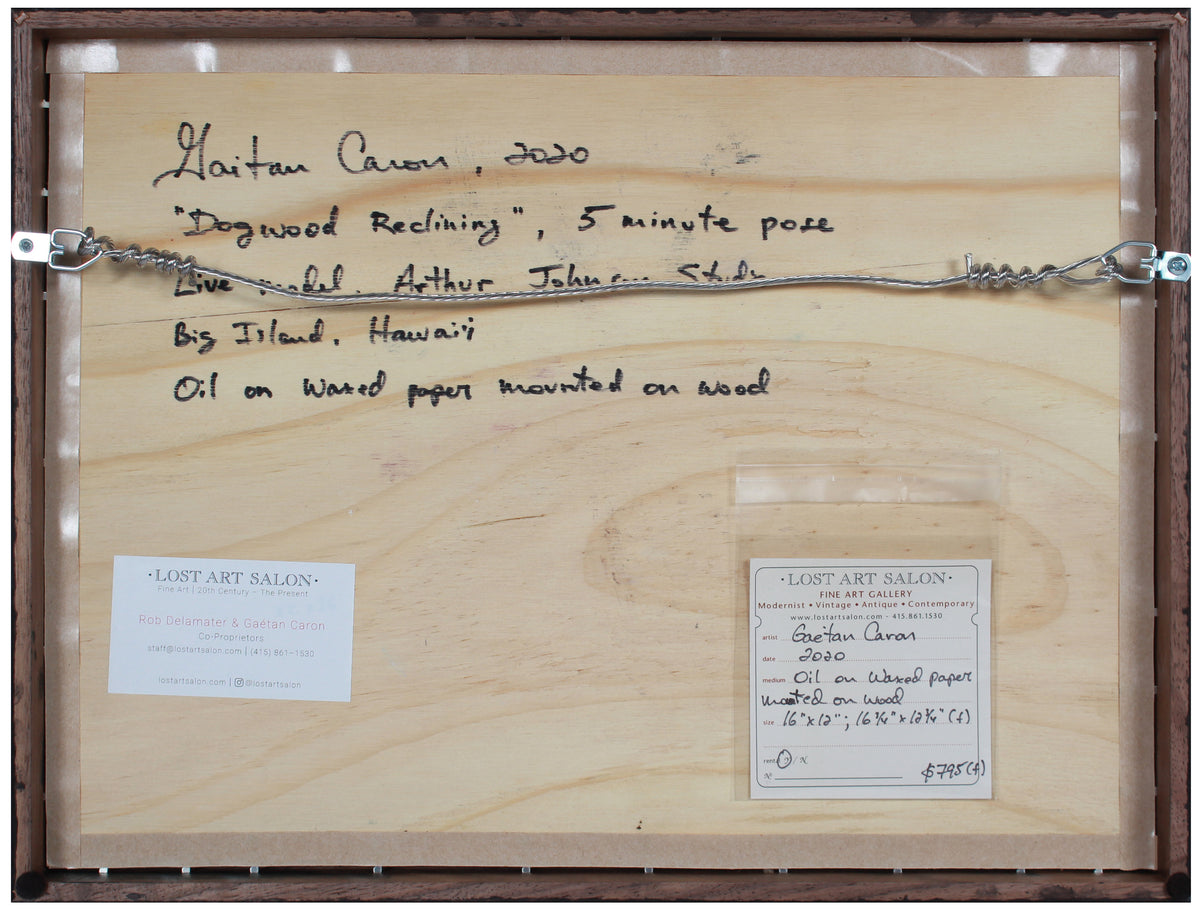 Gaitan Caron, 2020
"Dogwood Reclining", 5 minute pose
Live model. Arthur Johnsen Study
Big Island, Hawai'i
Oil on Waxed paper mounted on wood
·LOST ART SALON·
Fine Art | 20th Century – The Present
Rob Delamater & Gaétan Caron
Co-Proprietors
staff@lostartsalon.com | (415) 861–1530
lostartsalon.com | @lostartsalon
·LOST ART SALON·
FINE ART GALLERY
Modernist • Vintage • Antique • Contemporary
www.lostartsalon.com - 415.861.1530
artist Gaétan Caron
date 2020
medium Oil on Waxed paper
mounted on wood
size 16"x12"; 16 3/4"x12 3/4" (f)
rental Y / N
Nº $795(f)